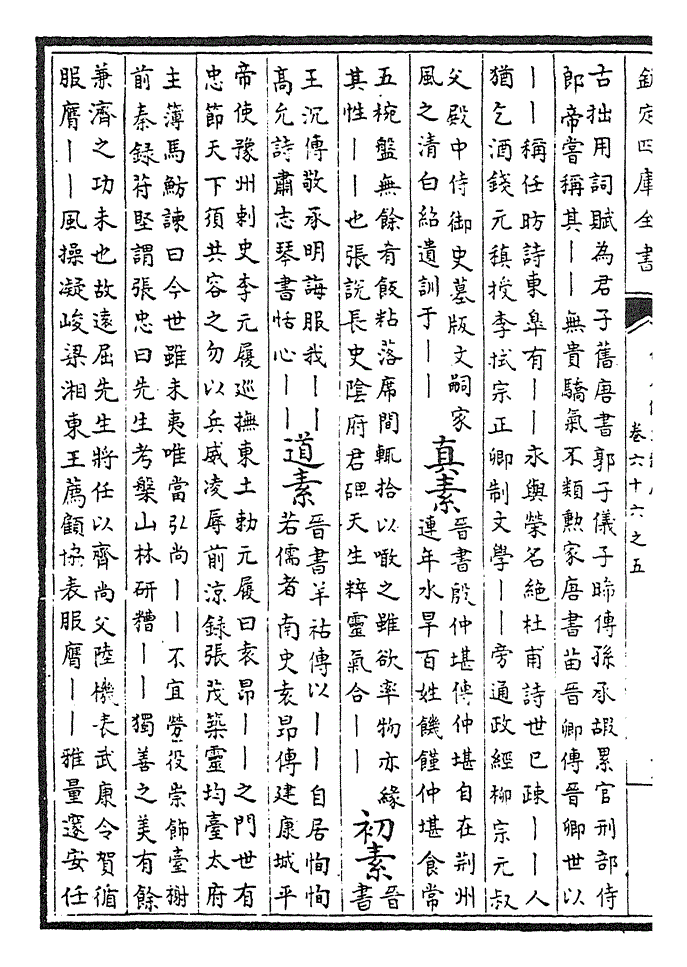 欽定四庫全書
卷六十六之五
古拙用詞賦為君子舊唐書郭子儀子晞傳孫承嘏累官刑部侍
郎帝嘗稱其丨丨無貴驕氣不類勲家唐書苗晉卿傳晉卿世以
丨丨稱任昉詩東臯有丨丨永與榮名絶杜甫詩世已疎丨丨人
猶乞酒錢元稹授李拭宗正卿制文學丨丨旁通政經柳宗元叔
父殿中侍御史墓版文嗣家
風之清白紹遺訓于丨丨
真素
晉書殷仲堪傳仲堪自在荆州
連年水旱百姓饑饉仲堪食常
五椀盤無餘肴飯粘落席間輒拾以噉之雖欲率物亦緣
其性丨丨也張說長史陰府君碑天生粹靈氣合丨丨
初素
晉
書
王沉傳敬承明誨服我丨丨
高允詩肅志琴書恬心丨丨
道素
晉書羊祜傳以丨丨自居恂恂
若儒者南史袁昂傳建康城平
帝使豫州刺史李元履巡撫東土勅元履曰袁昂丨丨之門世有
忠節天下須共容之勿以兵威凌辱前涼録張茂築靈均臺太府
主簿馬魴諫曰今世雖未夷唯當弘尚丨丨不宜勞役崇飾臺榭
前秦録苻堅謂張忠曰先生考槃山林研精丨丨獨善之美有餘
兼濟之功未也故遠屈先生將任以齊尚父陸機表武康令賀循
服膺丨丨風操凝峻梁湘東王薦顧協表服膺丨丨雅量邃安任